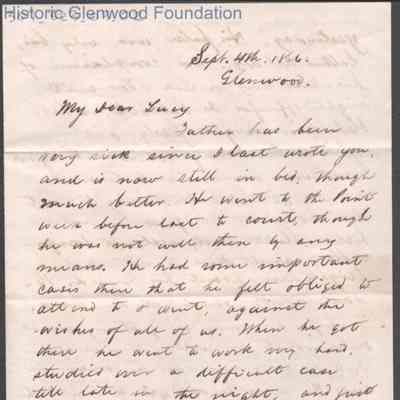 Historic Glenwood Foundation
Sept. 4th. 1866.
Glenwood.
My Dear Lucy
Father has been
very sick since I last wrote you,
and is now still in bed, though
much better. He went to the Point
week before last to court, though
he was not well then by any
means. He had some important
cases there that he felt obliged to
attend to & went, against the
wishes of all of us. When he got
there he went to work very hard,
studied over a difficult case
till late in the night, and just